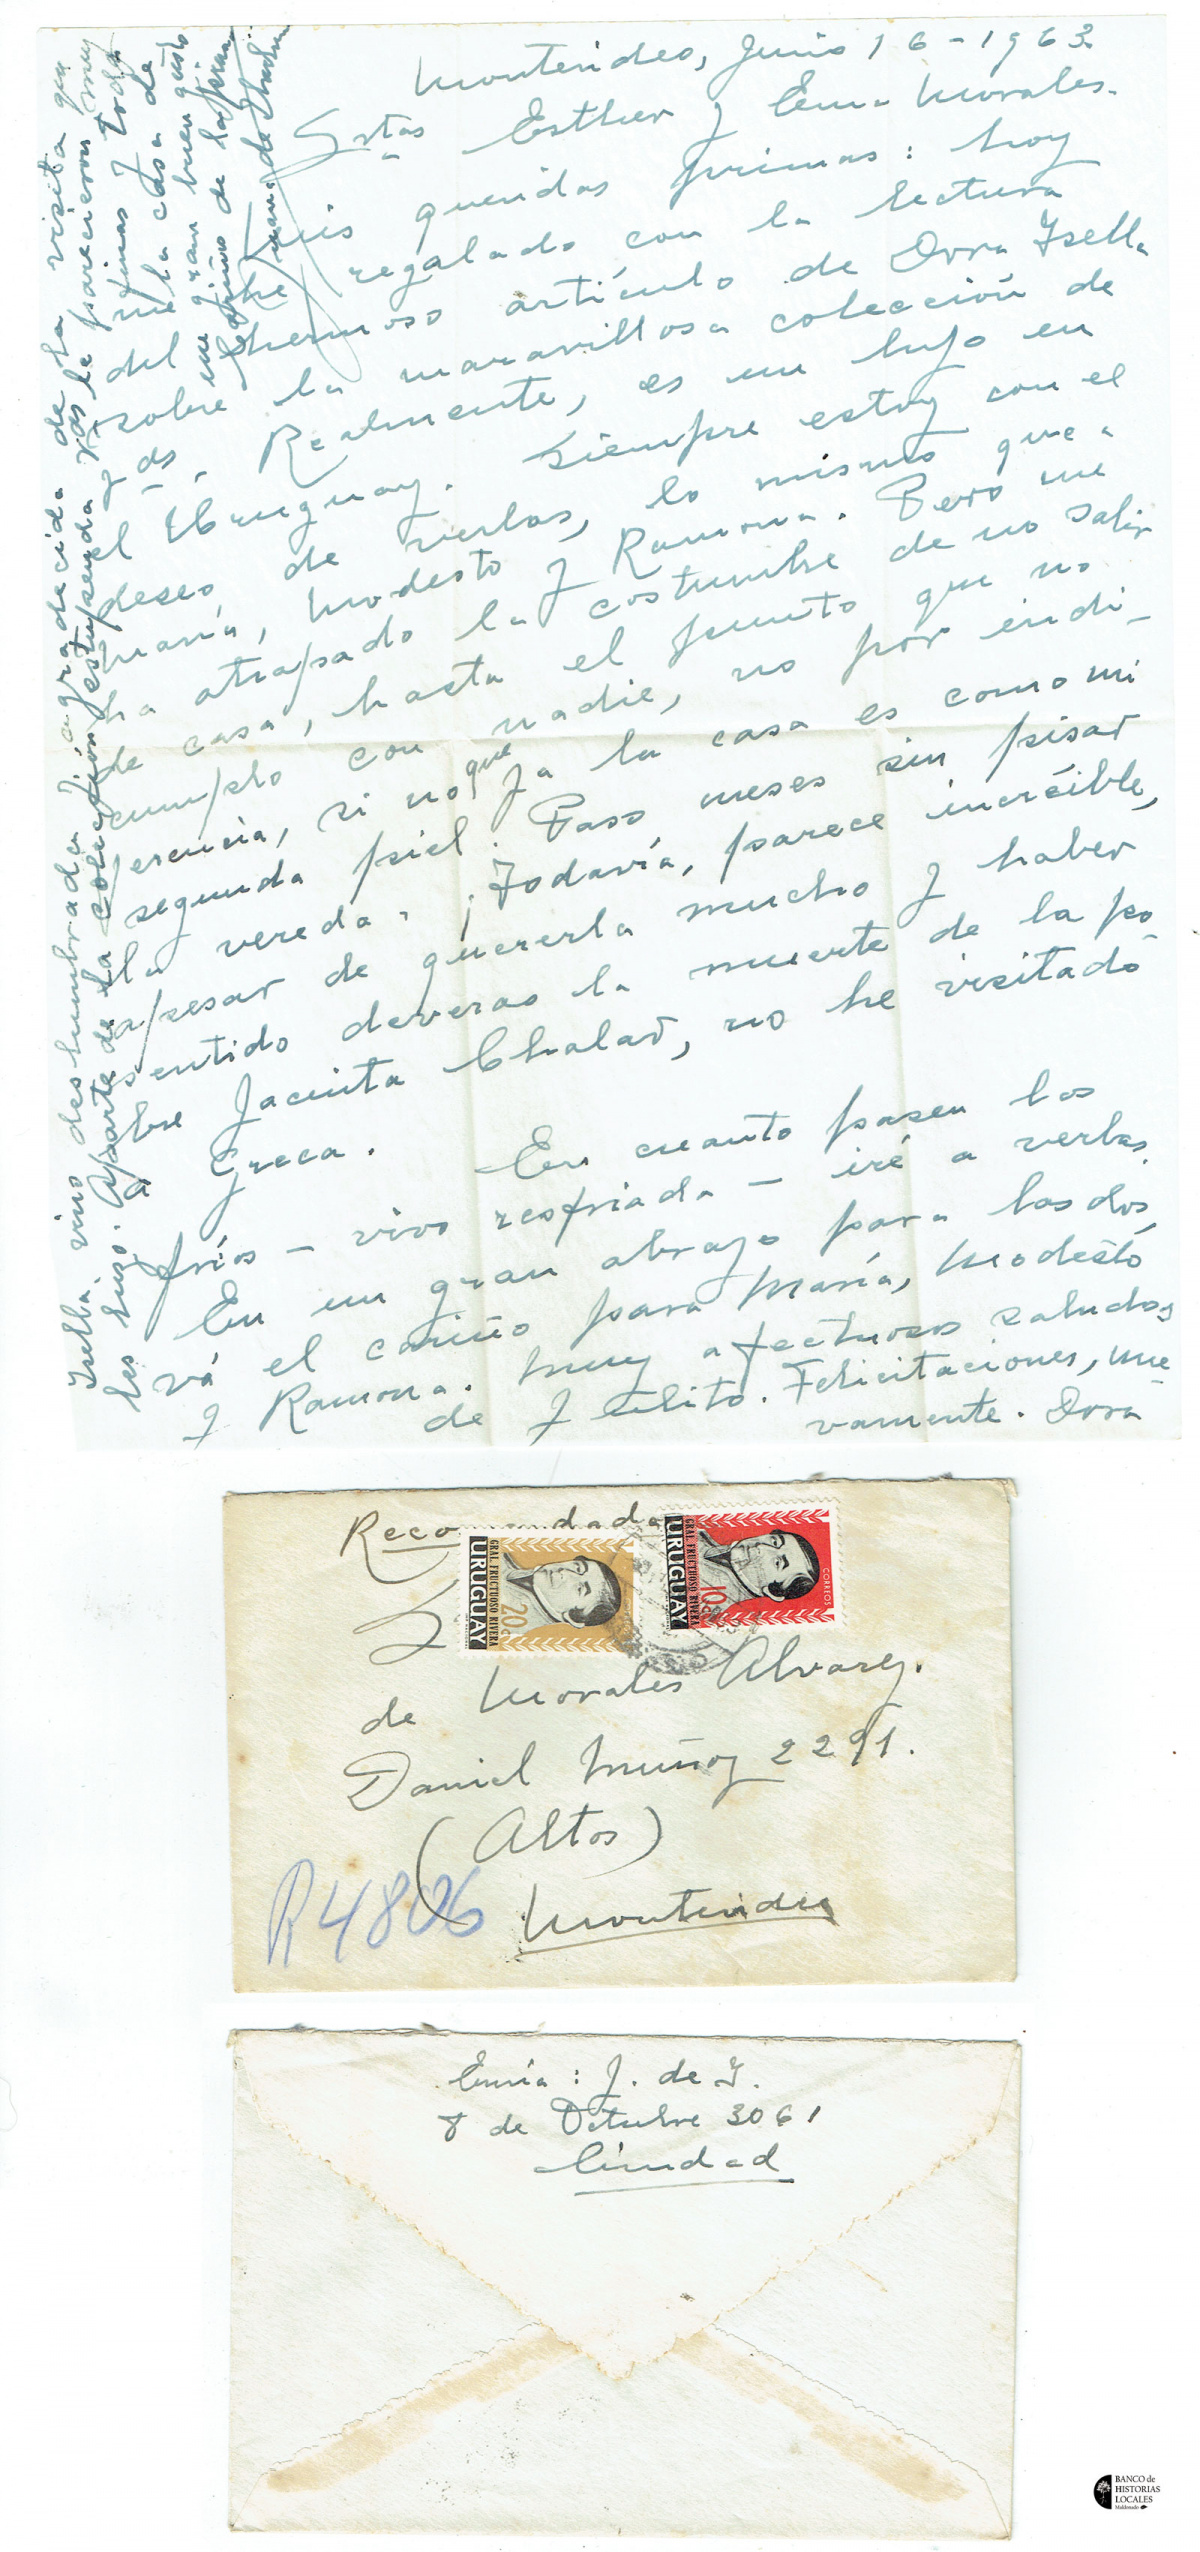 Montevideo, Junio 16-1963
Srtas Esther y Ema Morales.
Mis queridas primas: hoy
me he regalado con la lectura
del hermoso artículo de Dora Isella
sobre la maravillosa colección de
Uds. Realmente, es un lujo en
el Uruguay. Siempre estoy con el
deseo de verlas, lo mismo que a
María, Modesto y Ramona. Pero me
ha atrapado la costumbre de no salir
de casa, hasta el punto que no
cumplo con nadie, no por indi-
ferencia, si no que ya la casa es como mi
segunda piel. Paso meses sin pisar
la vereda. ¡Todavía, parece increíble,
apesar de quererla mucho y haber
sentido deveras la muerte de la po-
bre Jacinta Chalar, no he visitado
a Greca. En cuanto pasen los
fríos - vivo resfriada - iré a verlas.
En un gran abrazo para las dos,
vá el cariño para María, Modesto
y Ramona. Muy afectuosos saludos
de Julito. Felicitaciones, nue-
vamente. Dora
Isella vino deslumbrada y agradecida de la visita que
les hizo. Aparte de la colección estupenda Vds le parecieron muy
finas y toda
la casa de
un gran buen gusto
Cariños de la prima
Juana de Ibarbourou
Recomendada
URUGUAY
GRAL. FRUCTUOSO RIVERA
20c
URUGUAY
GRAL. FRUCTUOSO RIVERA
10c
CORREOS
de Morales Alvarez.
Daniel Muñoz 2291.
(Altos)
R4806
Montevideo
Envía: J. de I.
8 de Octubre 3061
Ciudad
BANCO de
HISTORIAS
LOCALES
Maldonado